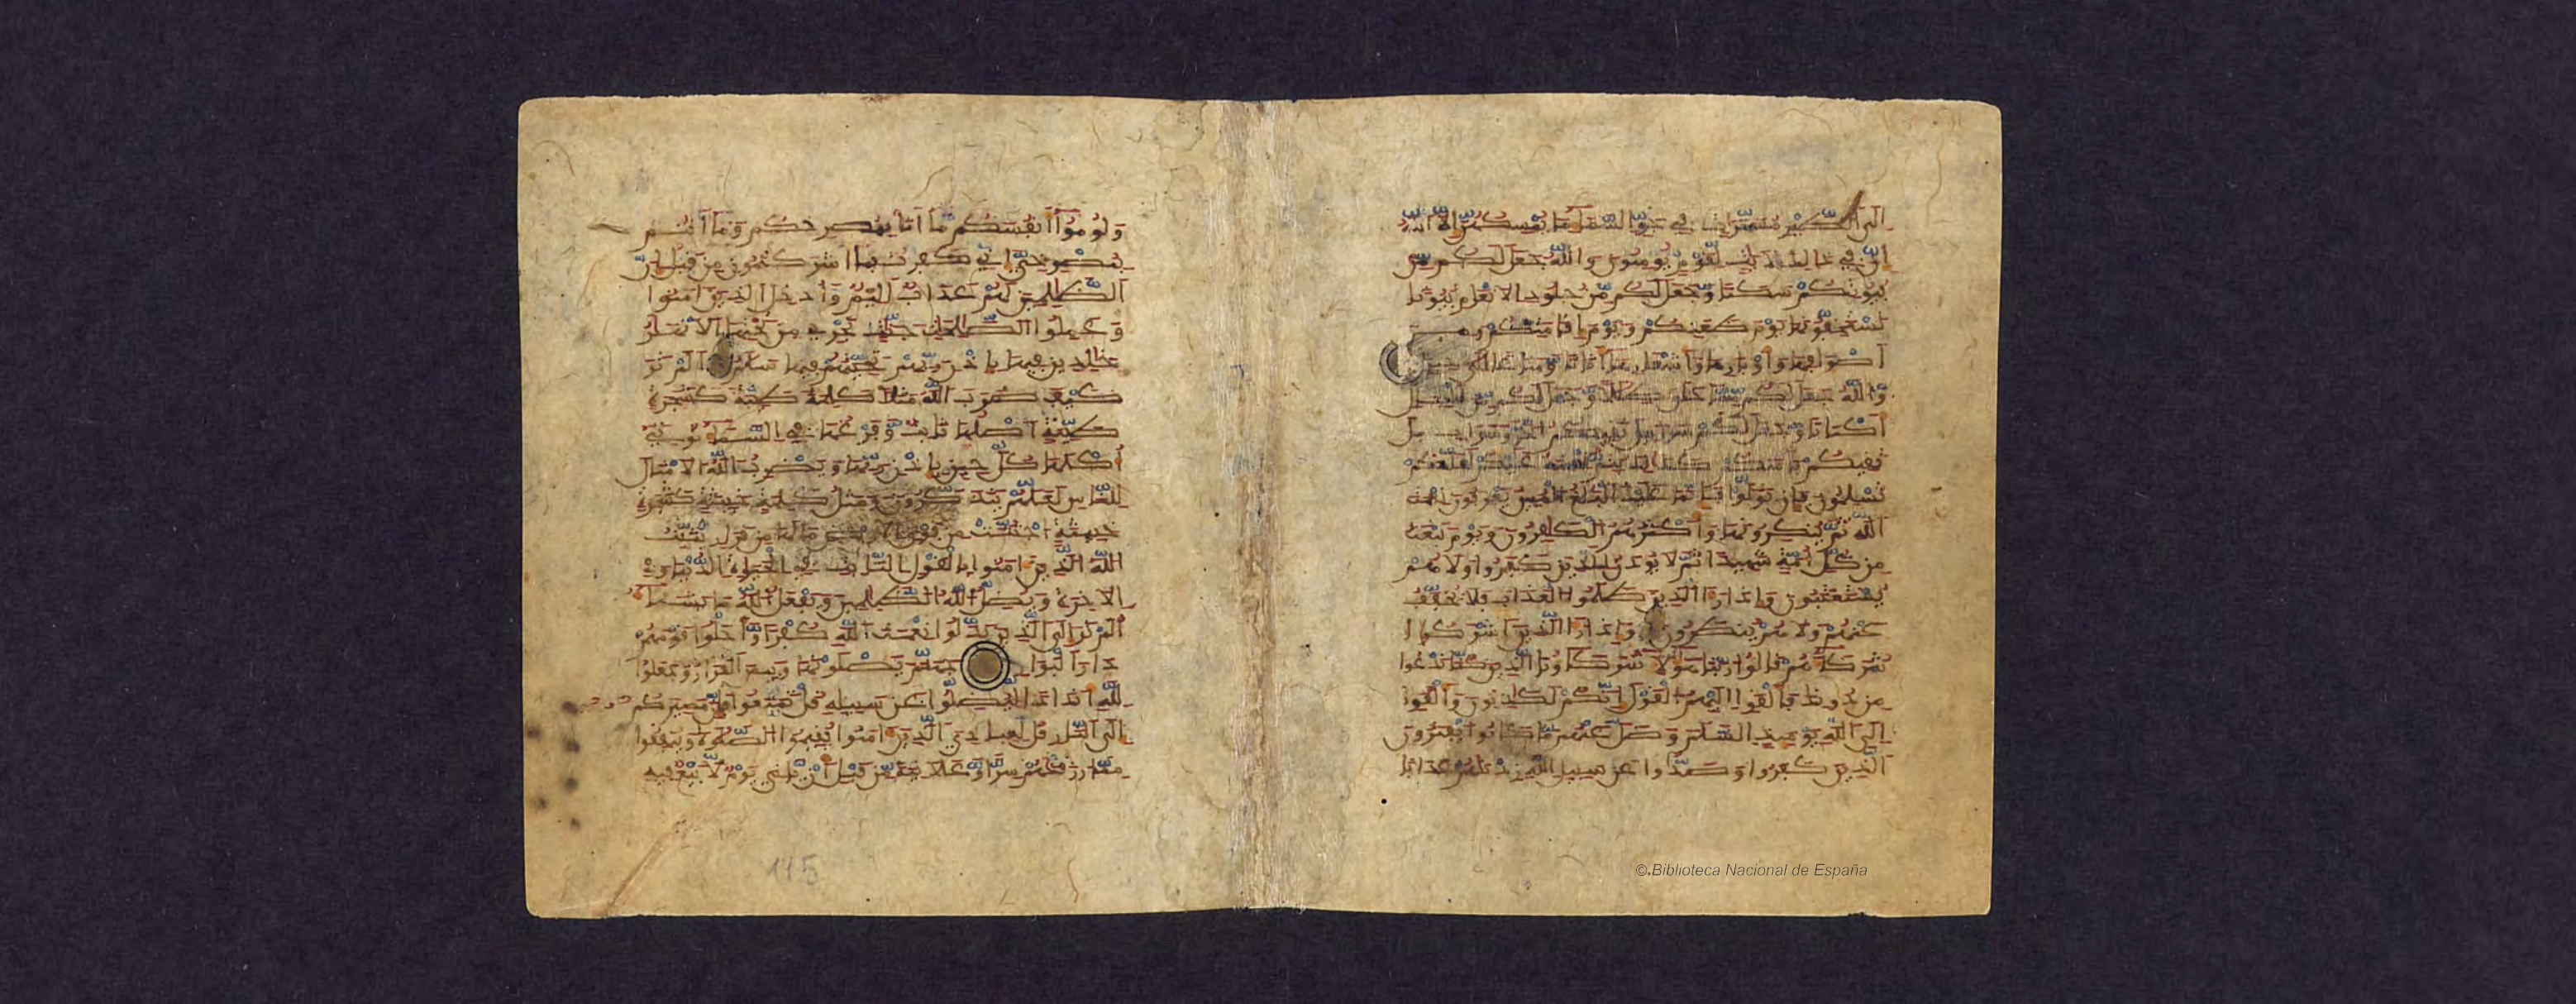 الى الطير مسخرات في جو السماء ما يمسكهن الا الله
ان في ذلك لايت لقوم يومنون والله جعل لكم من
بيوتكم سكنا وجعل لكم من جلود الانعام بيوتا
تستخفونها يوم ظعنكم ويوم اقامتكم ومن
اصوافها واوبارها واشعارها اثاثا ومتاعا الى حين
والله جعل لكم مما خلق ظلالا وجعل لكم من الجبال
اكنانا وجعل لكم سرابيل تقيكم الحر وسرابيل
تقيكم باسكم كذلك يتم نعمته عليكم لعلكم
تسلمون فان تولوا فانما عليك البلغ المبين يعرفون نعمة
الله ثم ينكرونها واكثرهم الكافرون ويوم نبعث
من كل امة شهيدا ثم لا يوذن للذين كفروا ولا هم
يستعتبون واذا را الذين ظلموا العذاب فلا يخفف
عنهم ولا هم ينظرون واذا را الذين اشركوا
شركاءهم قالوا ربنا هولاء شركاونا الذين كنا ندعوا
من دونك فالقوا اليهم القول انكم لكذبون والقوا
الى الله يوميذ السلم وضل عنهم ما كانوا يفترون
الذين كفروا وصدوا عن سبيل الله زدنهم عذابا
ولوموا انفسكم ما انا بمصرخكم وما انتم
بمصرخي اني كفرت بما اشركتمون من قبل ان
الظلمين لهم عذاب اليم وادخل الذين امنوا
وعملوا الصلحت جنت تجري من تحتها الانهر
خلدين فيها باذن ربهم تحيتهم فيها سلم الم تر
كيف ضرب الله مثلا كلمة طيبة كشجرة
طيبة اصلها ثابت وفرعها في السماء توتي
اكلها كل حين باذن ربها ويضرب الله الامثال
للناس لعلهم يتذكرون ومثل كلمة خبيثة كشجرة
خبيثة اجتثت من فوق الارض ما لها من قرار يثبت
الله الذين امنوا بالقول الثابت في الحيوة الدنيا وفي
الاخرة ويضل الله الظلمين ويفعل الله ما يشاء
الم تر الى الذين بدلوا نعمت الله كفرا واحلوا قومهم
دار البوار جهنم يصلونها وبيس القرار وجعلوا
لله اندادا ليضلوا عن سبيله قل تمتعوا فان مصيركم
الى النار قل لعبادي الذين امنوا يقيموا الصلوة وينفقوا
مما رزقنهم سرا وعلانية من قبل ان ياتي يوم لا بيع فيه
115
© Biblioteca Nacional de España